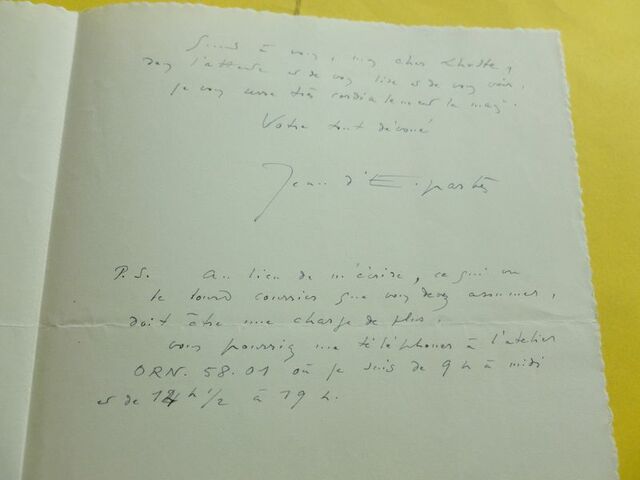 à vous, mon cher Lhotte,
dans l'attente et de vous lire et de vous voir,
je vous serre très cordialement la main.
Votre tout dévoué
Jean d'Esparbès
P.S. Au lieu de m'écrire, ce qui vu
le lourd courrier que vous devez assumer,
doit être une charge de plus.
vous pourriez me téléphoner à l'atelier
ORN. 58.01 où je suis de 9 h à midi
et de h 1/2 à 19 h.